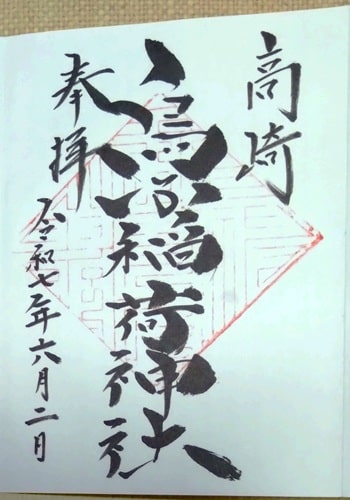 高崎
烏子稲荷神社
奉拝
令和七年六月二日